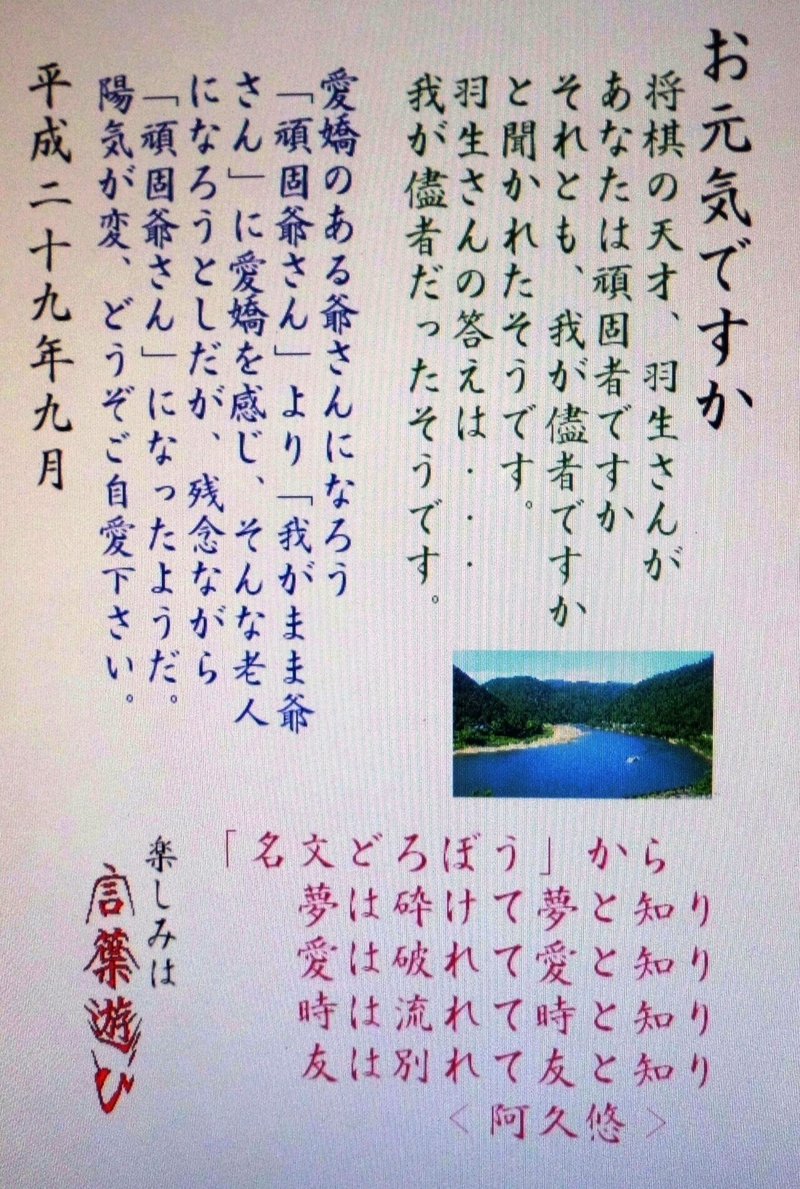 お元気ですか
将棋の天才、羽生さんが
あなたは頑固者ですか
それとも、我が儘者ですか
と聞かれたそうです。
羽生さんの答えは・・・
我が儘者だったそうです。
愛嬌のある爺さんになろう
「頑固爺さん」より「我がまま爺
さん」に愛嬌を感じ、そんな老人
になろうとしだが、残念ながら
「頑固爺さん」になったようだ。
陽気が変、どうぞご自愛下さい。
平成二十九年九月
「名文どろぼう」から
夢は砕けて夢と知り
愛は破れて愛と知り
時は流れて時と知り
友は別れて友と知り
<阿久悠>
楽しみは
言葉遊び